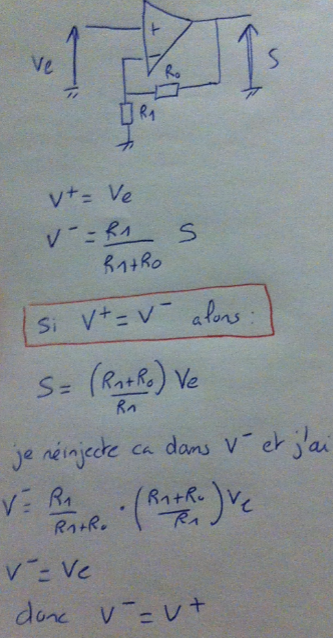 +
-
Ve
R0
S
R1
V+ = Ve
V- = R1/(R1+R0) S
Si V+ = V- alors :
S = ((R1+R0)/R1) Ve
je réinjecte ca dans V- et j'ai
V- = R1/(R1+R0) · ((R1+R0)/R1) Ve
V- = Ve
donc V- = V+